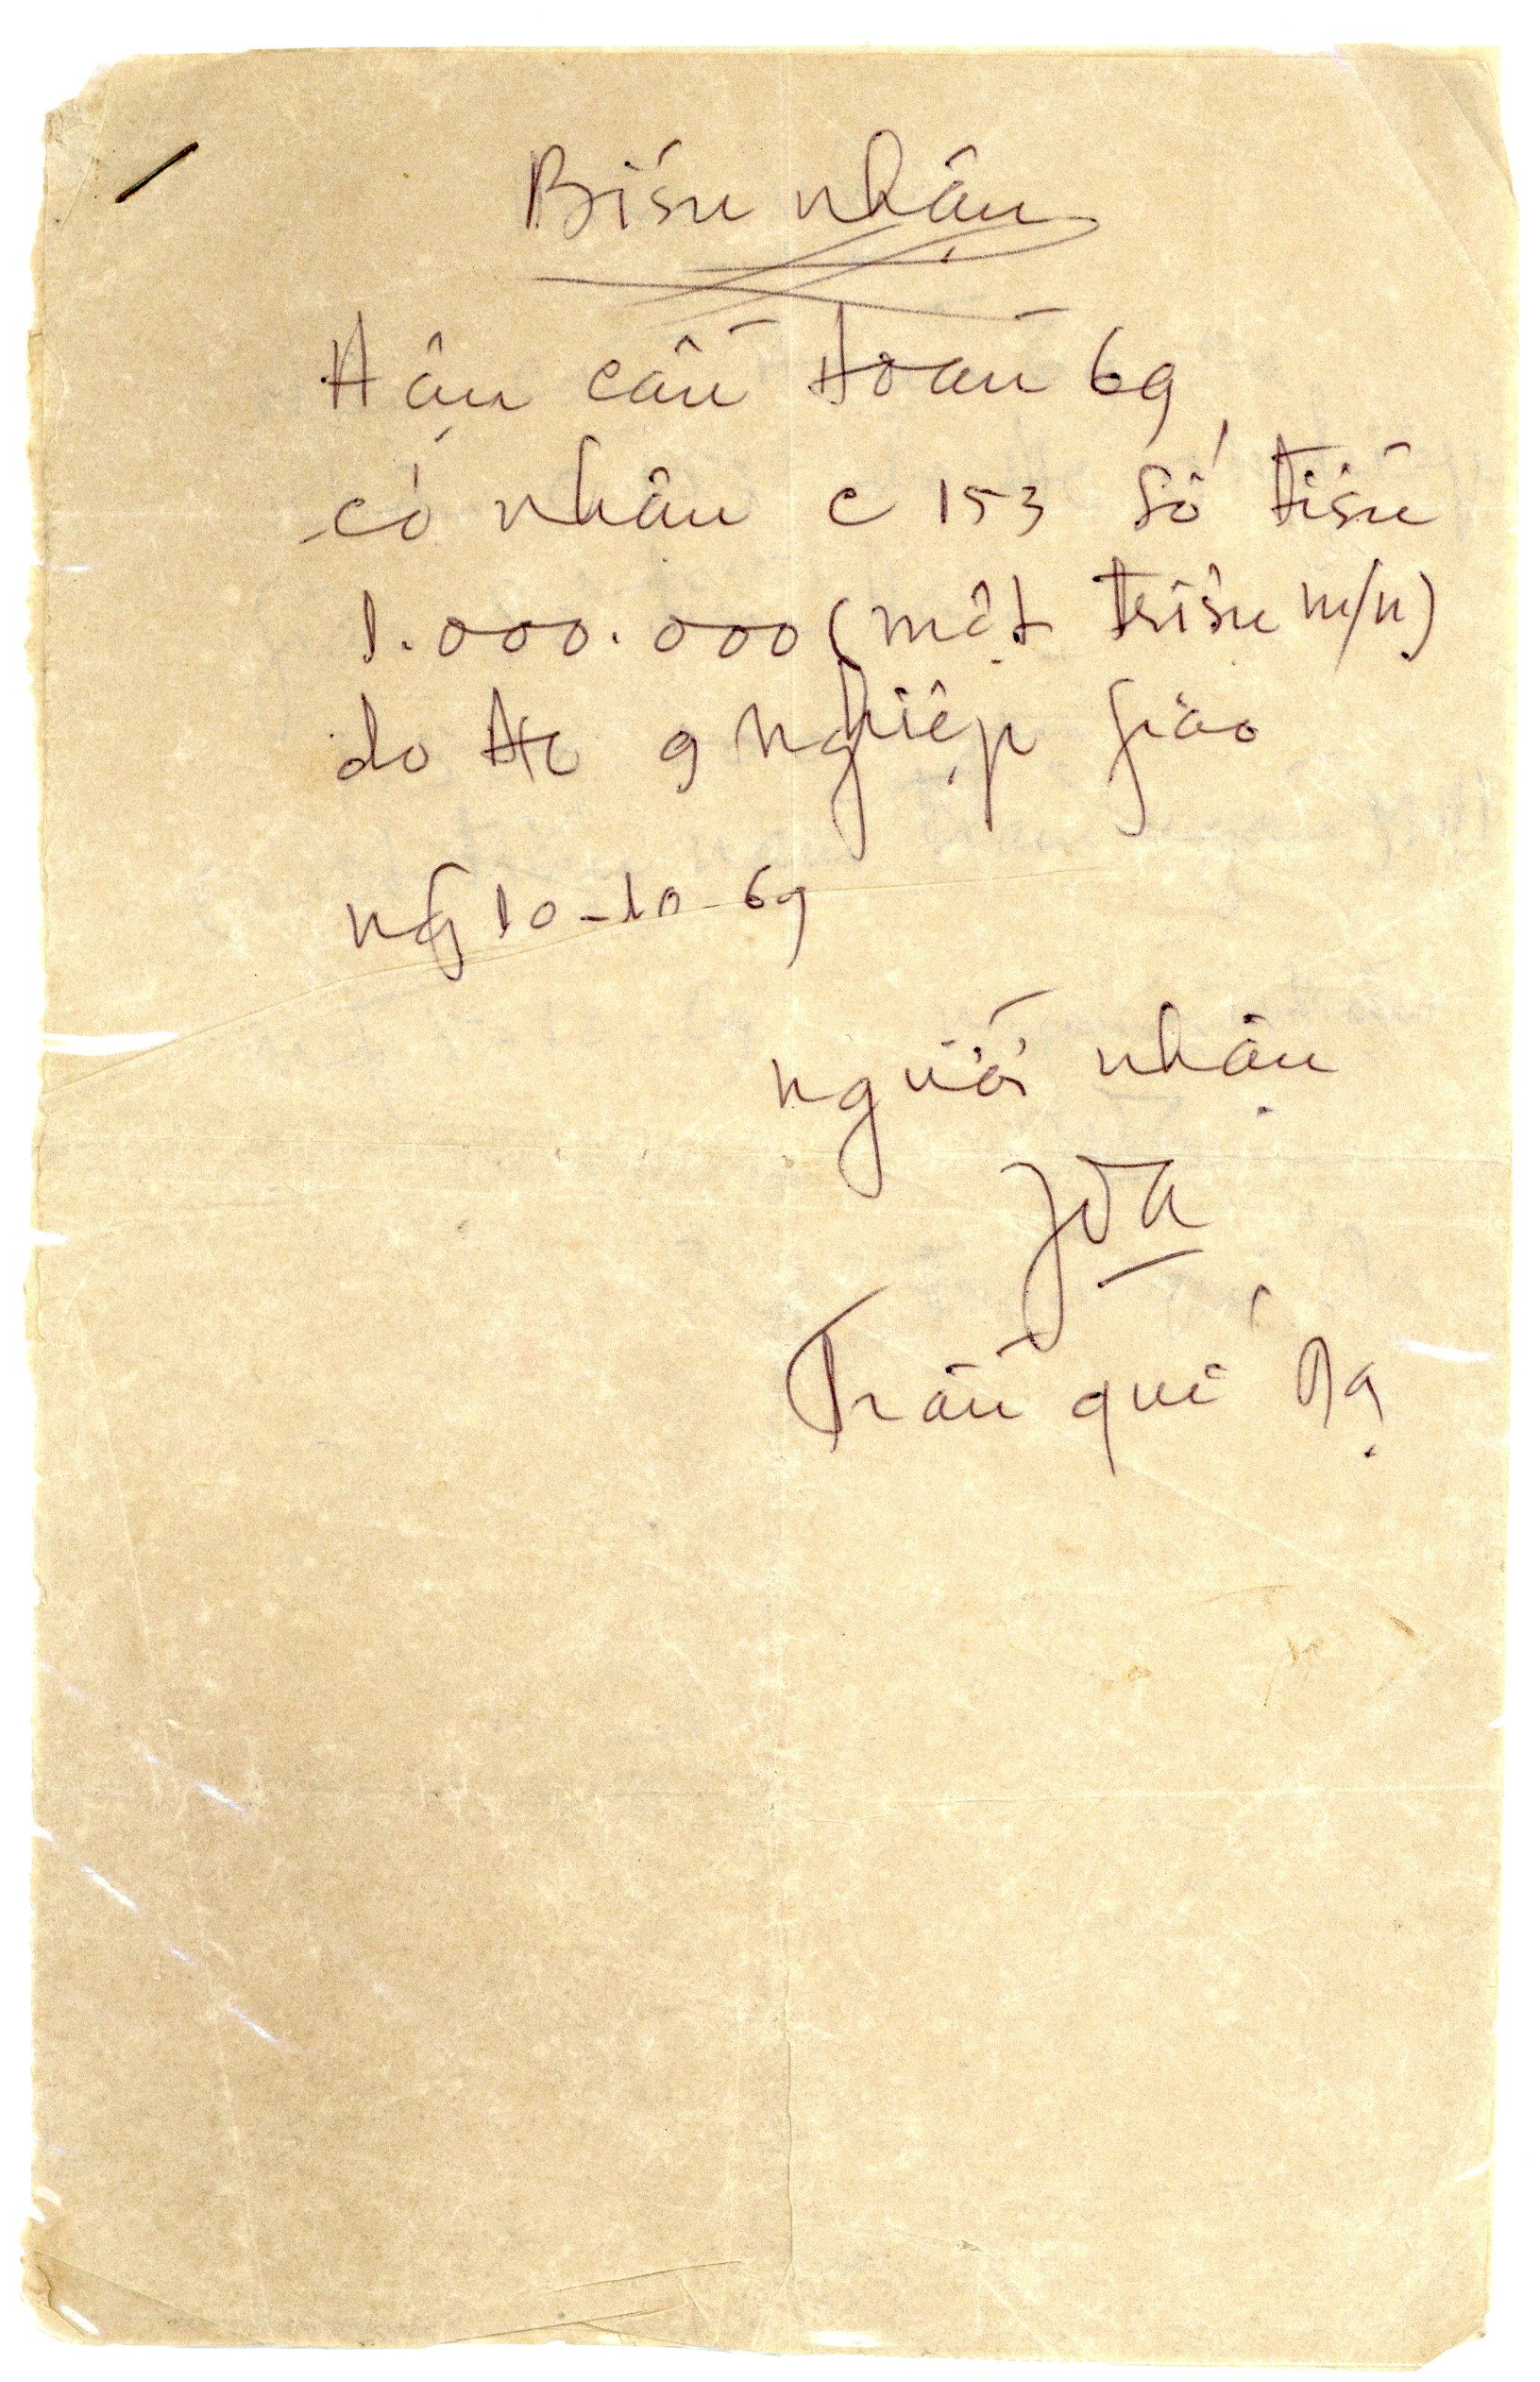 Biên nhận
Hậu cần Đoàn 69
có nhận C 153 số tiền
1.000.000 (một triệu m/n)
do đ/c 9 Nghiệp giao
ng 10-10-69
người nhận
Trần quí Dạ